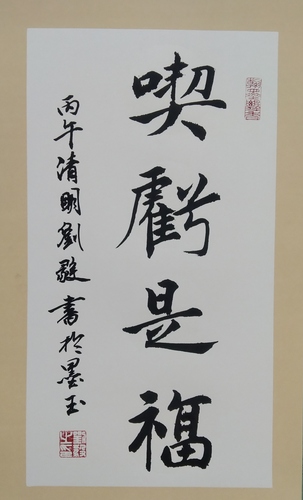 喫虧是福
丙午清明劉毅書於墨玉